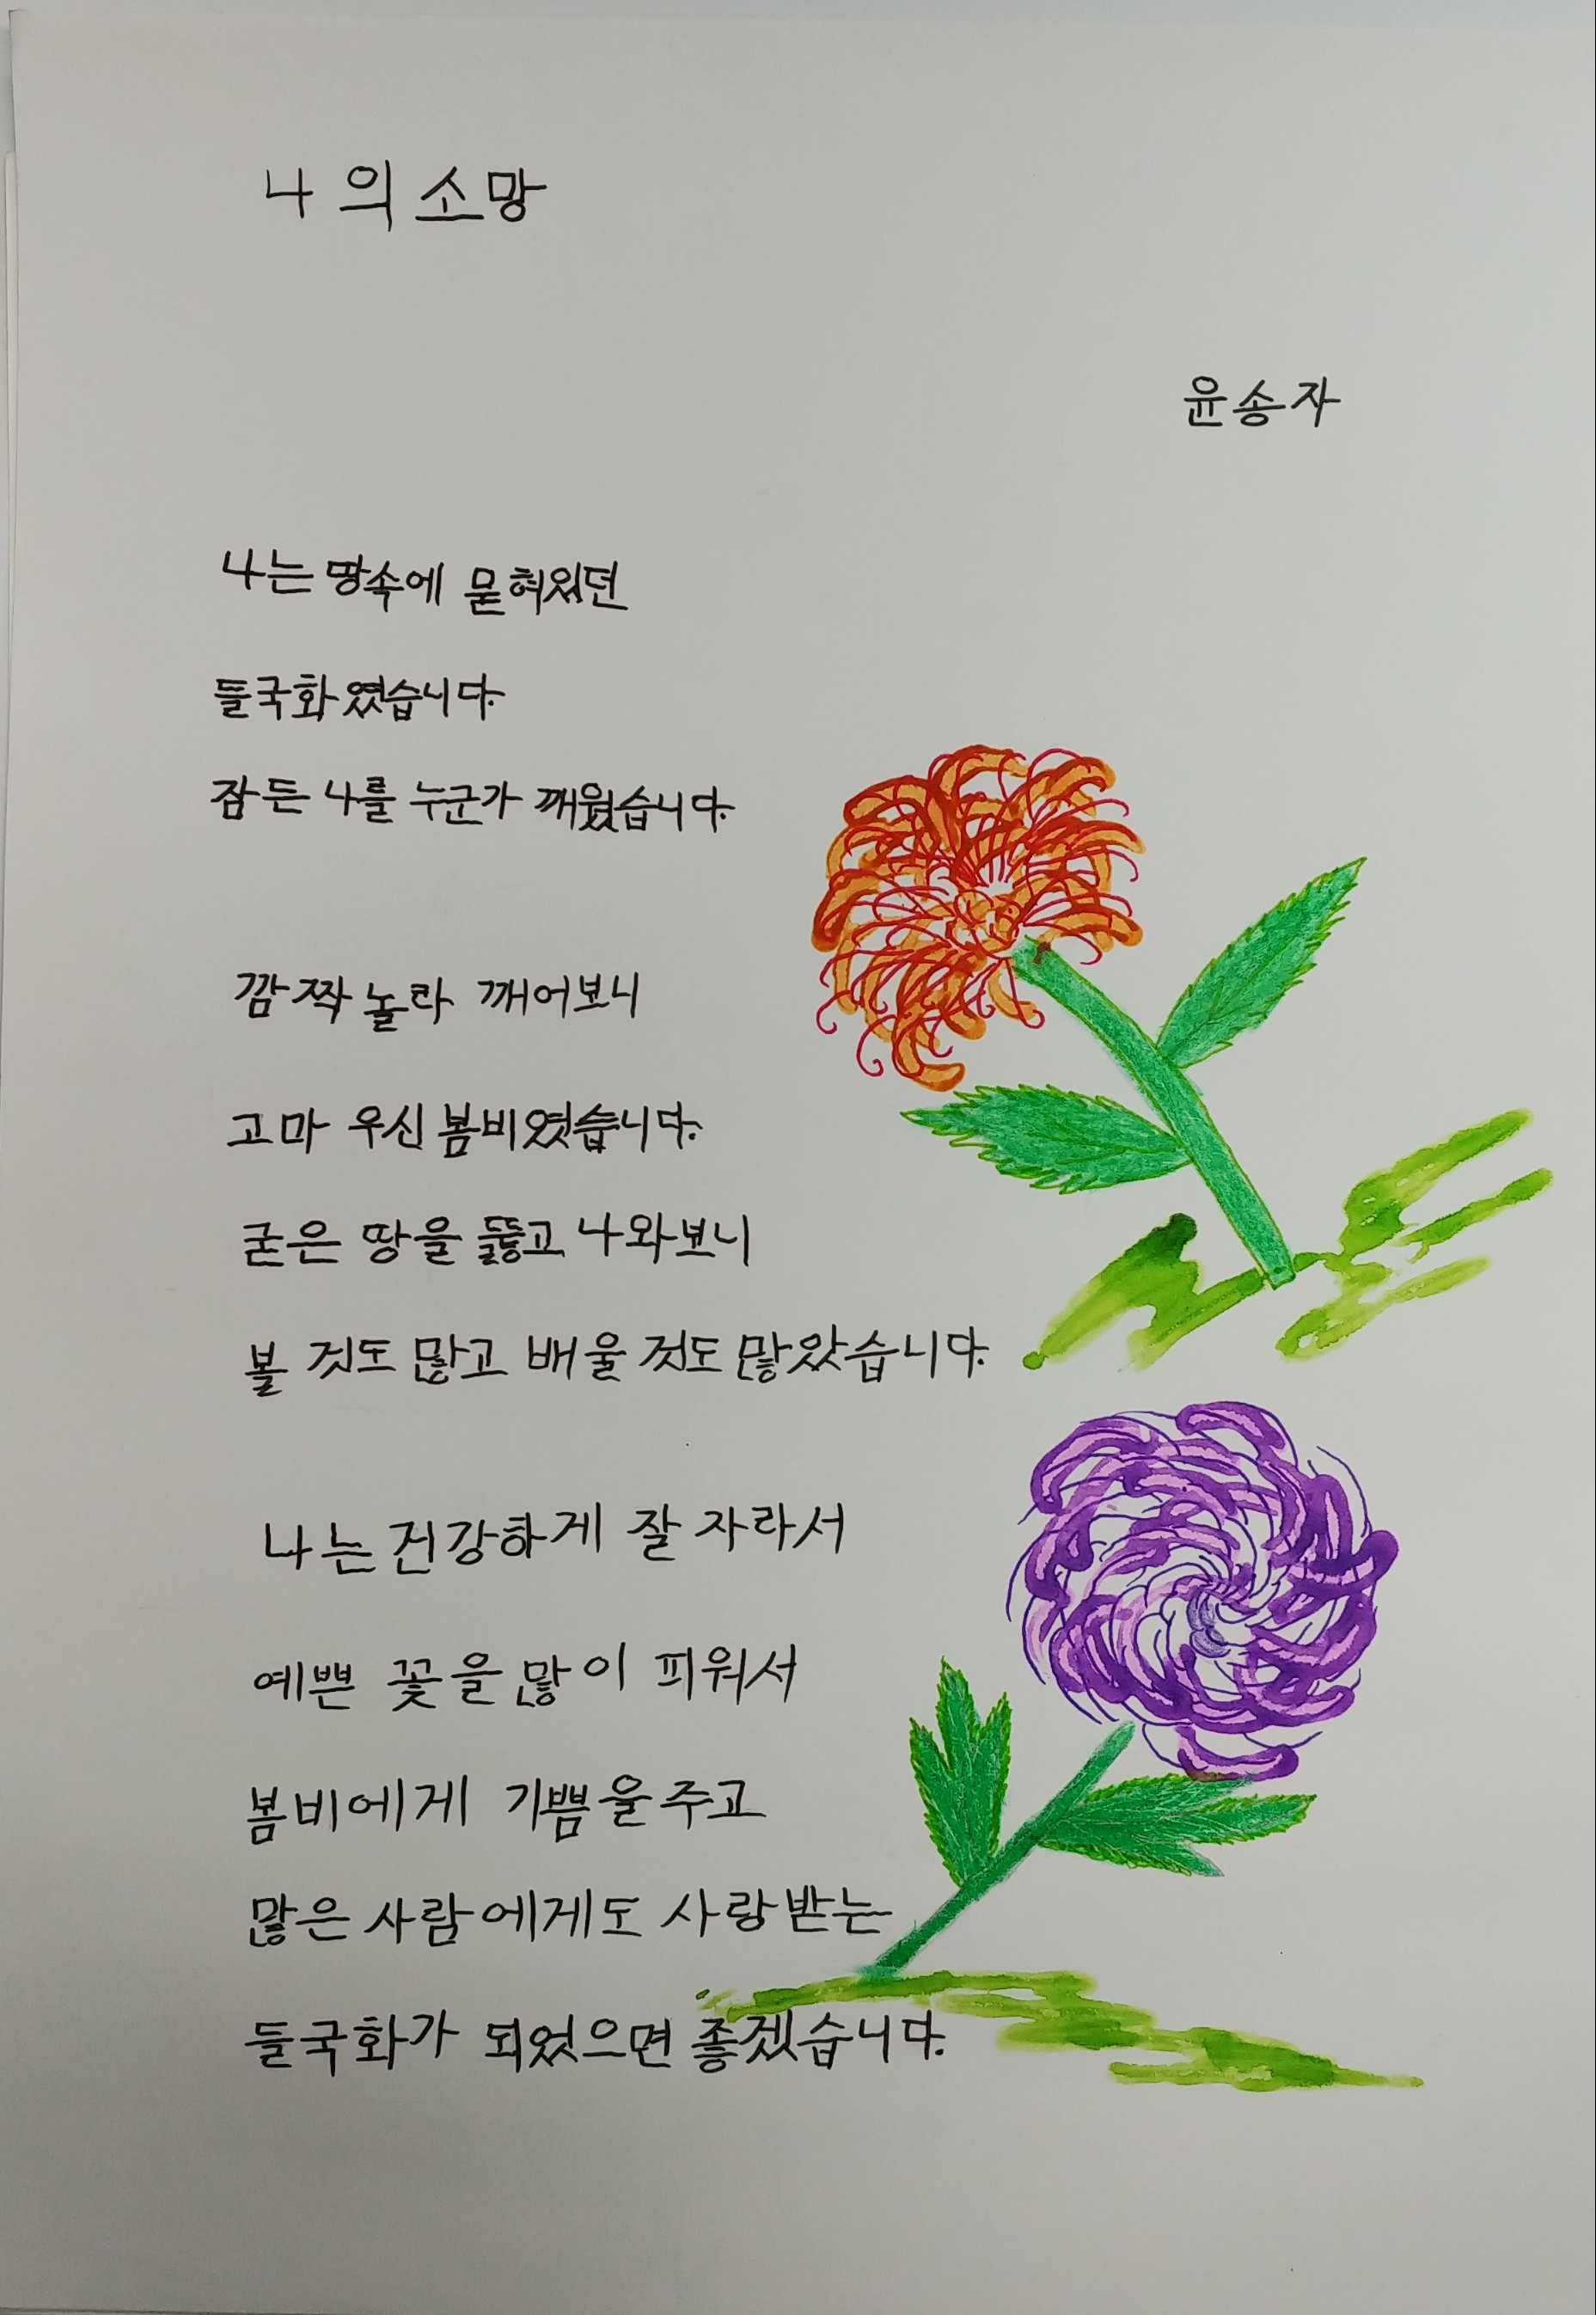 나의 소망
윤송자
나는 땅속에 묻혀있던
들국화였습니다.
잠든 나를 누군가 깨웠습니다.
깜짝 놀라 깨어보니
고마우신 봄비였습니다.
굳은 땅을 뚫고 나와보니
볼 것도 많고 배울 것도 많았습니다.
나는 건강하게 잘 자라서
예쁜 꽃을 많이 피워서
봄비에게 기쁨을 주고
많은 사람에게도 사랑받는
들국화가 되었으면 좋겠습니다.